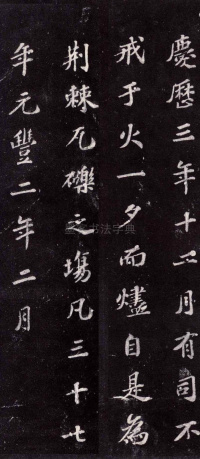 慶歷三年十二月有司不
戒于火一夕而燼自是為
荆棘瓦礫之場凡三十七
年元豐二年二月